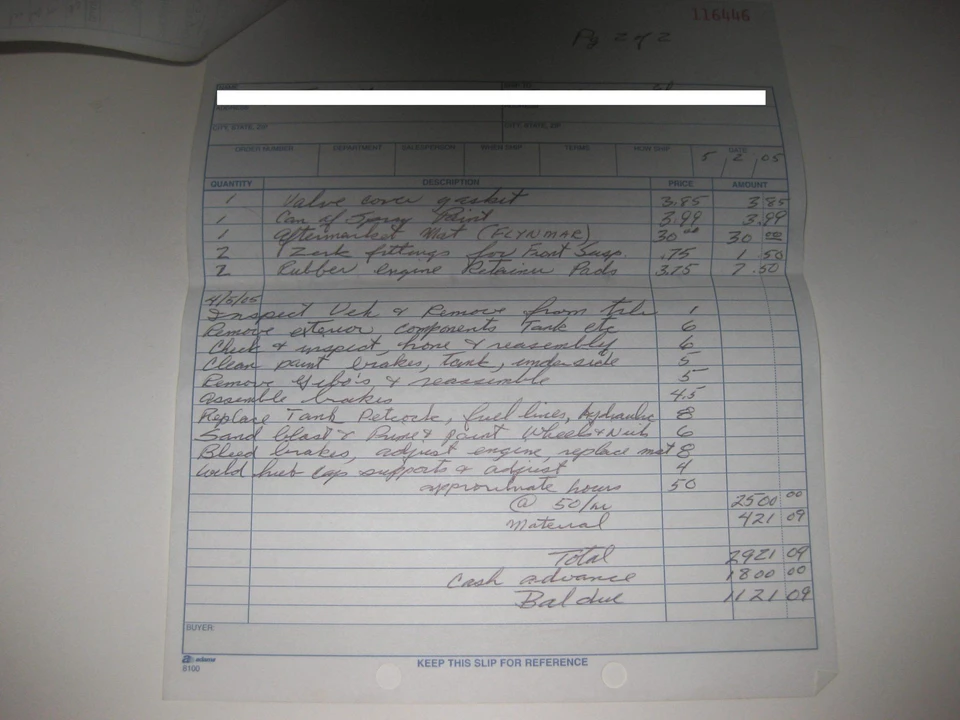 116446
Pg 2 of 2
CITY, STATE, ZIP CITY, STATE, ZIP
ORDER NUMBER DEPARTMENT SALESPERSON WHEN SHIP TERMS HOW SHIP DATE
5 2 05
QUANTITY DESCRIPTION PRICE AMOUNT
1 Valve cover gasket 3.85 3.85
1 Can of Spray Paint 3.99 3.99
1 Aftermarket Mat (FLYNMAR) 30 00 30 00
2 Zerk fittings for Front Susp. .75 1 .50
2 Rubber engine Retainer Pads 3.75 7.50
4/5/05
Inspect Veh & Remove from trlr 1
Remove exterior components Tank etc 6
Check & inspect, hone & reassembly 6
Clean paint brakes, tank, underside 5
Remove & reassemble 5
Assemble brakes 4.5
Replace Tank Petcock, fuel lines, hydraulic 8
Sand blast & Prime & paint Wheels & Nuts 6
Bleed brakes, adjust engine, replace mat 8
Weld hub cap supports & adjust 4
approximate hours 50
@ 50/hr 2500 00
Material 421 09
Total 2921 09
Cash advance 1800 00
Bal due 1121 09
BUYER:
adams
8100
KEEP THIS SLIP FOR REFERENCE